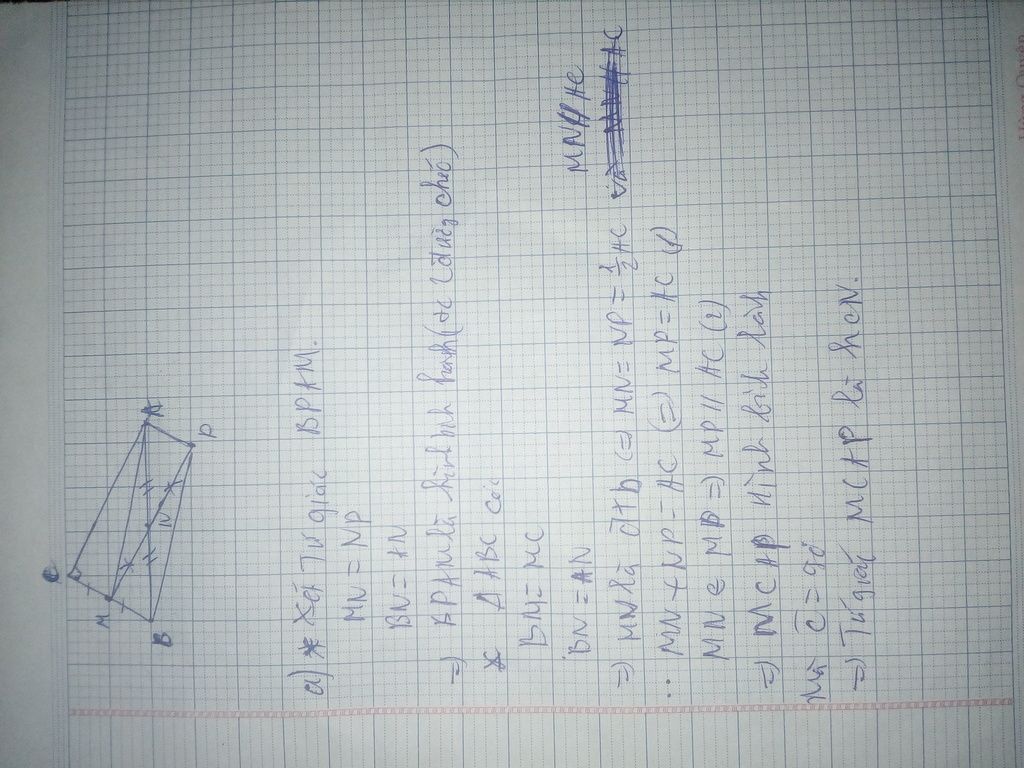 C
M
A
B
N
P
a) * Xét Tứ giác BPAM.
MN = NP
BN = AN
=) BPAM là hình bình hành (t/c 2 đường chéo)
* Δ ABC có:
BM = MC
BN = AN
=) MN là ĐTB (=) MN = NP = 1/2 AC MN // AC
MN + NP = AC (=) MP = AC (1)
MN ∈ MP =) MP // AC (2)
=) MCAP Hình bình hành
Mà C = 90
=) Tứ giác MCAP là hcN.